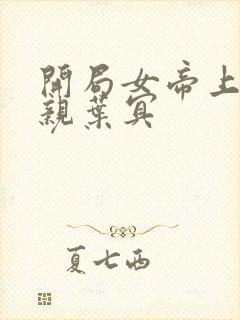 開局女帝上
親葉宾
夏七西